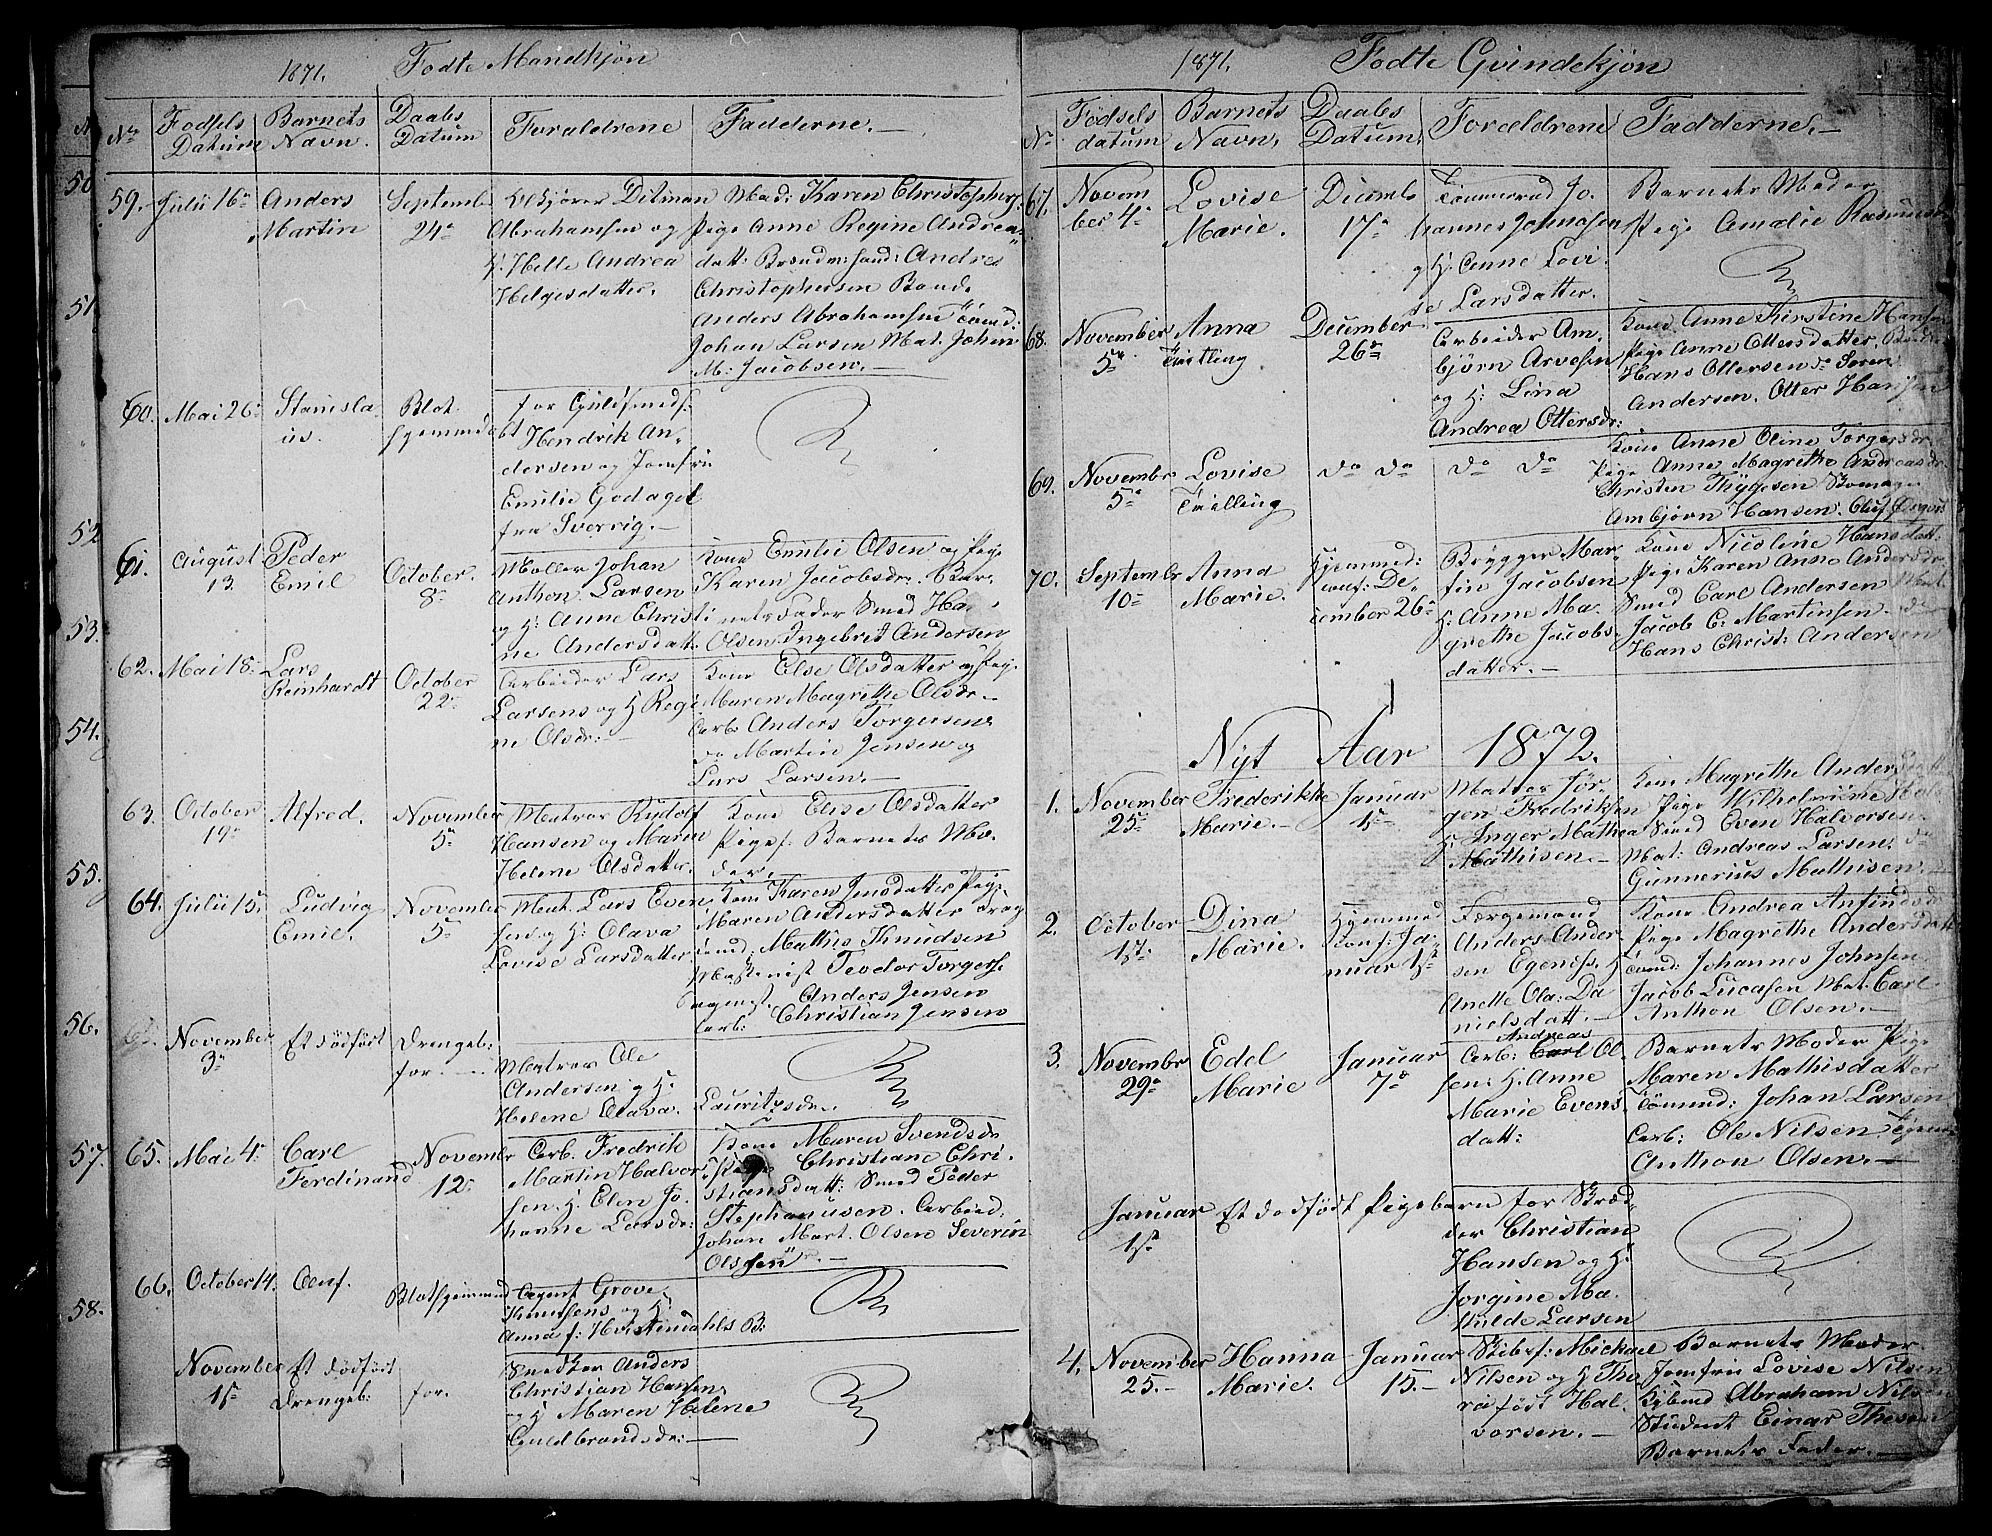 1871. Fodte Mandkjøn
No
Fodsels Datum
Barnets Navn.
Daabs Datum
Foraldrene
Fadderne.
59. Julii 16de Anders Martin
Septembr 24de
Ditman
Abrahamsen og
H. Helle Andrea
Helgesdatter.
Mad: Karen Christophers.
Pige Anne Regine Andrea
datt: Brandm: Andrea
Christophersen
Anders Abrahamsen Tømd:
Johan Larsen Mat. Johan
M. Jacobsen.
60. Mai 26de Stanislaus.
Blot hjemmedøbt
for Guldsmeds.
Hendrik An,
dersen og Jomfru
Emilie Godagel
fra Sverrig.
61. August 13. Peder Emil
October. 8de
Møller Johan
Anthon Larsen
og H: Anne Christi
ne Andersdatt.
Kone Emilie Olsen og Pige
Karen Jacobsdr. Bar,
nets Fader Smed
Olsen. Ingebret Andersen
62. Mai 18de Lars Reinhardt
October 22de
Arbeider Lars
Larsens og H Regi
ne Olsdr:
Kone Else Olsdatter og Pige
Maren Magrethe Olsdr.
Arb: Anders Torgersens
og Martin Jensen og
Lars Larsen.
63. October 19de Alfred.
November 5de
Matros Rudolf
Hansen og Maren
Helene Olsdatter.
Kone Elise Olsdatter
Pige f. Barnets Mo.
der.
64. Julii 15de Ludvig Emil.
November 5de
Mat. Lars Even
sen og H: Olava
Lovise Larsdatter
Kone Karen Jensdatter Pige
Maren Andersdatter
Mathis Knudsen
Teodor Torgers.
Anders Jensen
Arb: Christian Jensen
November 3de Et dødfødt Drengeb: for.
Matros Ole
Andersen og H:
Helene Olava. Lauritzdr.
65. Mai 4de Carl Ferdinand
November 12de
Arb. Fredrik
Martin Halvor
sen. H. Elen Jo
hanne Larsdr:
Kone Maren Svendsdr
Pige Christiane Chri.
stiansdatt: Smed Peder
Stephanusen. Arbeid:
Johan Mart. Olsen Severin
Olssen
66. October 14. Oluf.
Blot hjemmed
Agent Grove
Knutsens og H:
Anna f: Hvistendahls B.
November 1ste Et dødfødt Drengeb: for.
Snedker Anders
Christian Hansen,
og H Maren Helene
Guldbrandsdr:
50. 51. 52. 53. 54. 55. 56. 57. 58.
1871. Fødte Qvindekjøn
No
Fødsels datum
Barnets Navn,
Daabs Datum,
Forældrene
Fadderne.
67. November 4de Lovise Marie.
Decemb 17de
Tømmermd Jo.
hannes Johnssen
og H. Anne Lovi.
se Larsdatter.
Barnets Moder
Pige Amalie Rasmus
68. November 5te Anna Tvilling
December 26de
Arbeider Am,
bjørn Arvesen
og H: Lina
Andrea Ottersdr:
Kone Anne Kirstine Hansen
Pige Anne Ottersdatter
Hans Ottersen do Søren
Andersen. Otter Hansen
69. Novembr 5de Lovise Tvilling
do do do do
Kone Anne Oline Torgersdr
Pige Anne Magrethe Andreasdr.
Christen Thygesen
Ambjørn Hansen. Oluf
70. Septembr 10de Anna Marie.
Hjemmed: conf: De
cember 26de
Brygger Mar
tin Jacobsen
H: Anne Ma.
grethe Jacobs.
datter.
Kone Nicoline Hansdatt.
Pige Karen Anne Andersdr
Smed Carl Andersen Mat.
Jacob C. Martinsen. do
Hans Christ: Andersen
Nyt Aar 1872.
1. November 25de Frederikke Marie.
Januar 1ste
Matros Jør,
gen Fredriksen
H. Inger Mathea
Mathisen.
Kone Magrethe Andersdatt
Pige Wilhelmine
Smed Even Halvorsen.
Mat: Andreas Larsen. do
Gunnerius Mathisen.
2. October 17de Dina Marie.
Hjemmed conf: Ja,
nuar 1ste
Færgemand
Anders Ander
sen Egeniss. H
Anette Ola: Da
nielsdatt.
Kone Andrea
Pige Magrethe Andersdatt
Tømd: Johannes Johnsen
Jacob Lucasen Mat. Carl
Anthon Olsen.
3. Novembr 29de Edel Marie
Januar 7de
Andreas
Arb: Carl Ol.
sen. H. Anne
Marie Evens.
datt:
Barnets Moder Pige
Maren Mathisdatter
Tømmd: Johan Larsen
Arb: Ole Nilsen
Anthon Olsen.
Januar 1ste Et dødfødt Pigebarn for Skræd
der Christian
Hansen og H:
Jorgine Ma.
thilde Larsen
4. November 25. Hanna Marie.
Januar 15.
Skibsf: Mickael
Nilsen og H Tho,
ra født Hal.
vorsen.
Barnets Moder
Jomfru Lovise Nilsen
Abraham Nilsen
Student Einar Thesen
Barnets Fader.